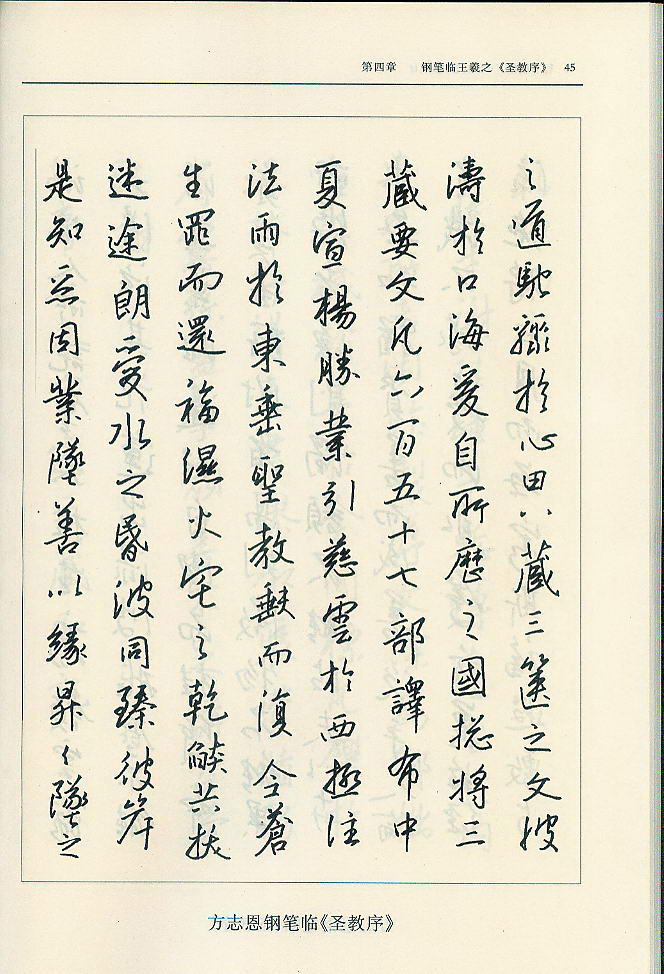 第四章 钢笔临王羲之《圣教序》 45
之道馳驟於心田八藏三篋之文波
濤於口海爰自所歷之國揔將三
藏要文凡六百五十七部譯布中
夏宣楊勝業引慈雲於西極注
法雨於東垂聖教缺而復全蒼
生罪而還福濕火宅之乾燄共拔
迷途朗愛水之昏波同臻彼岸
是知惡因業墜善以緣昇々墜之
方志恩钢笔临《圣教序》